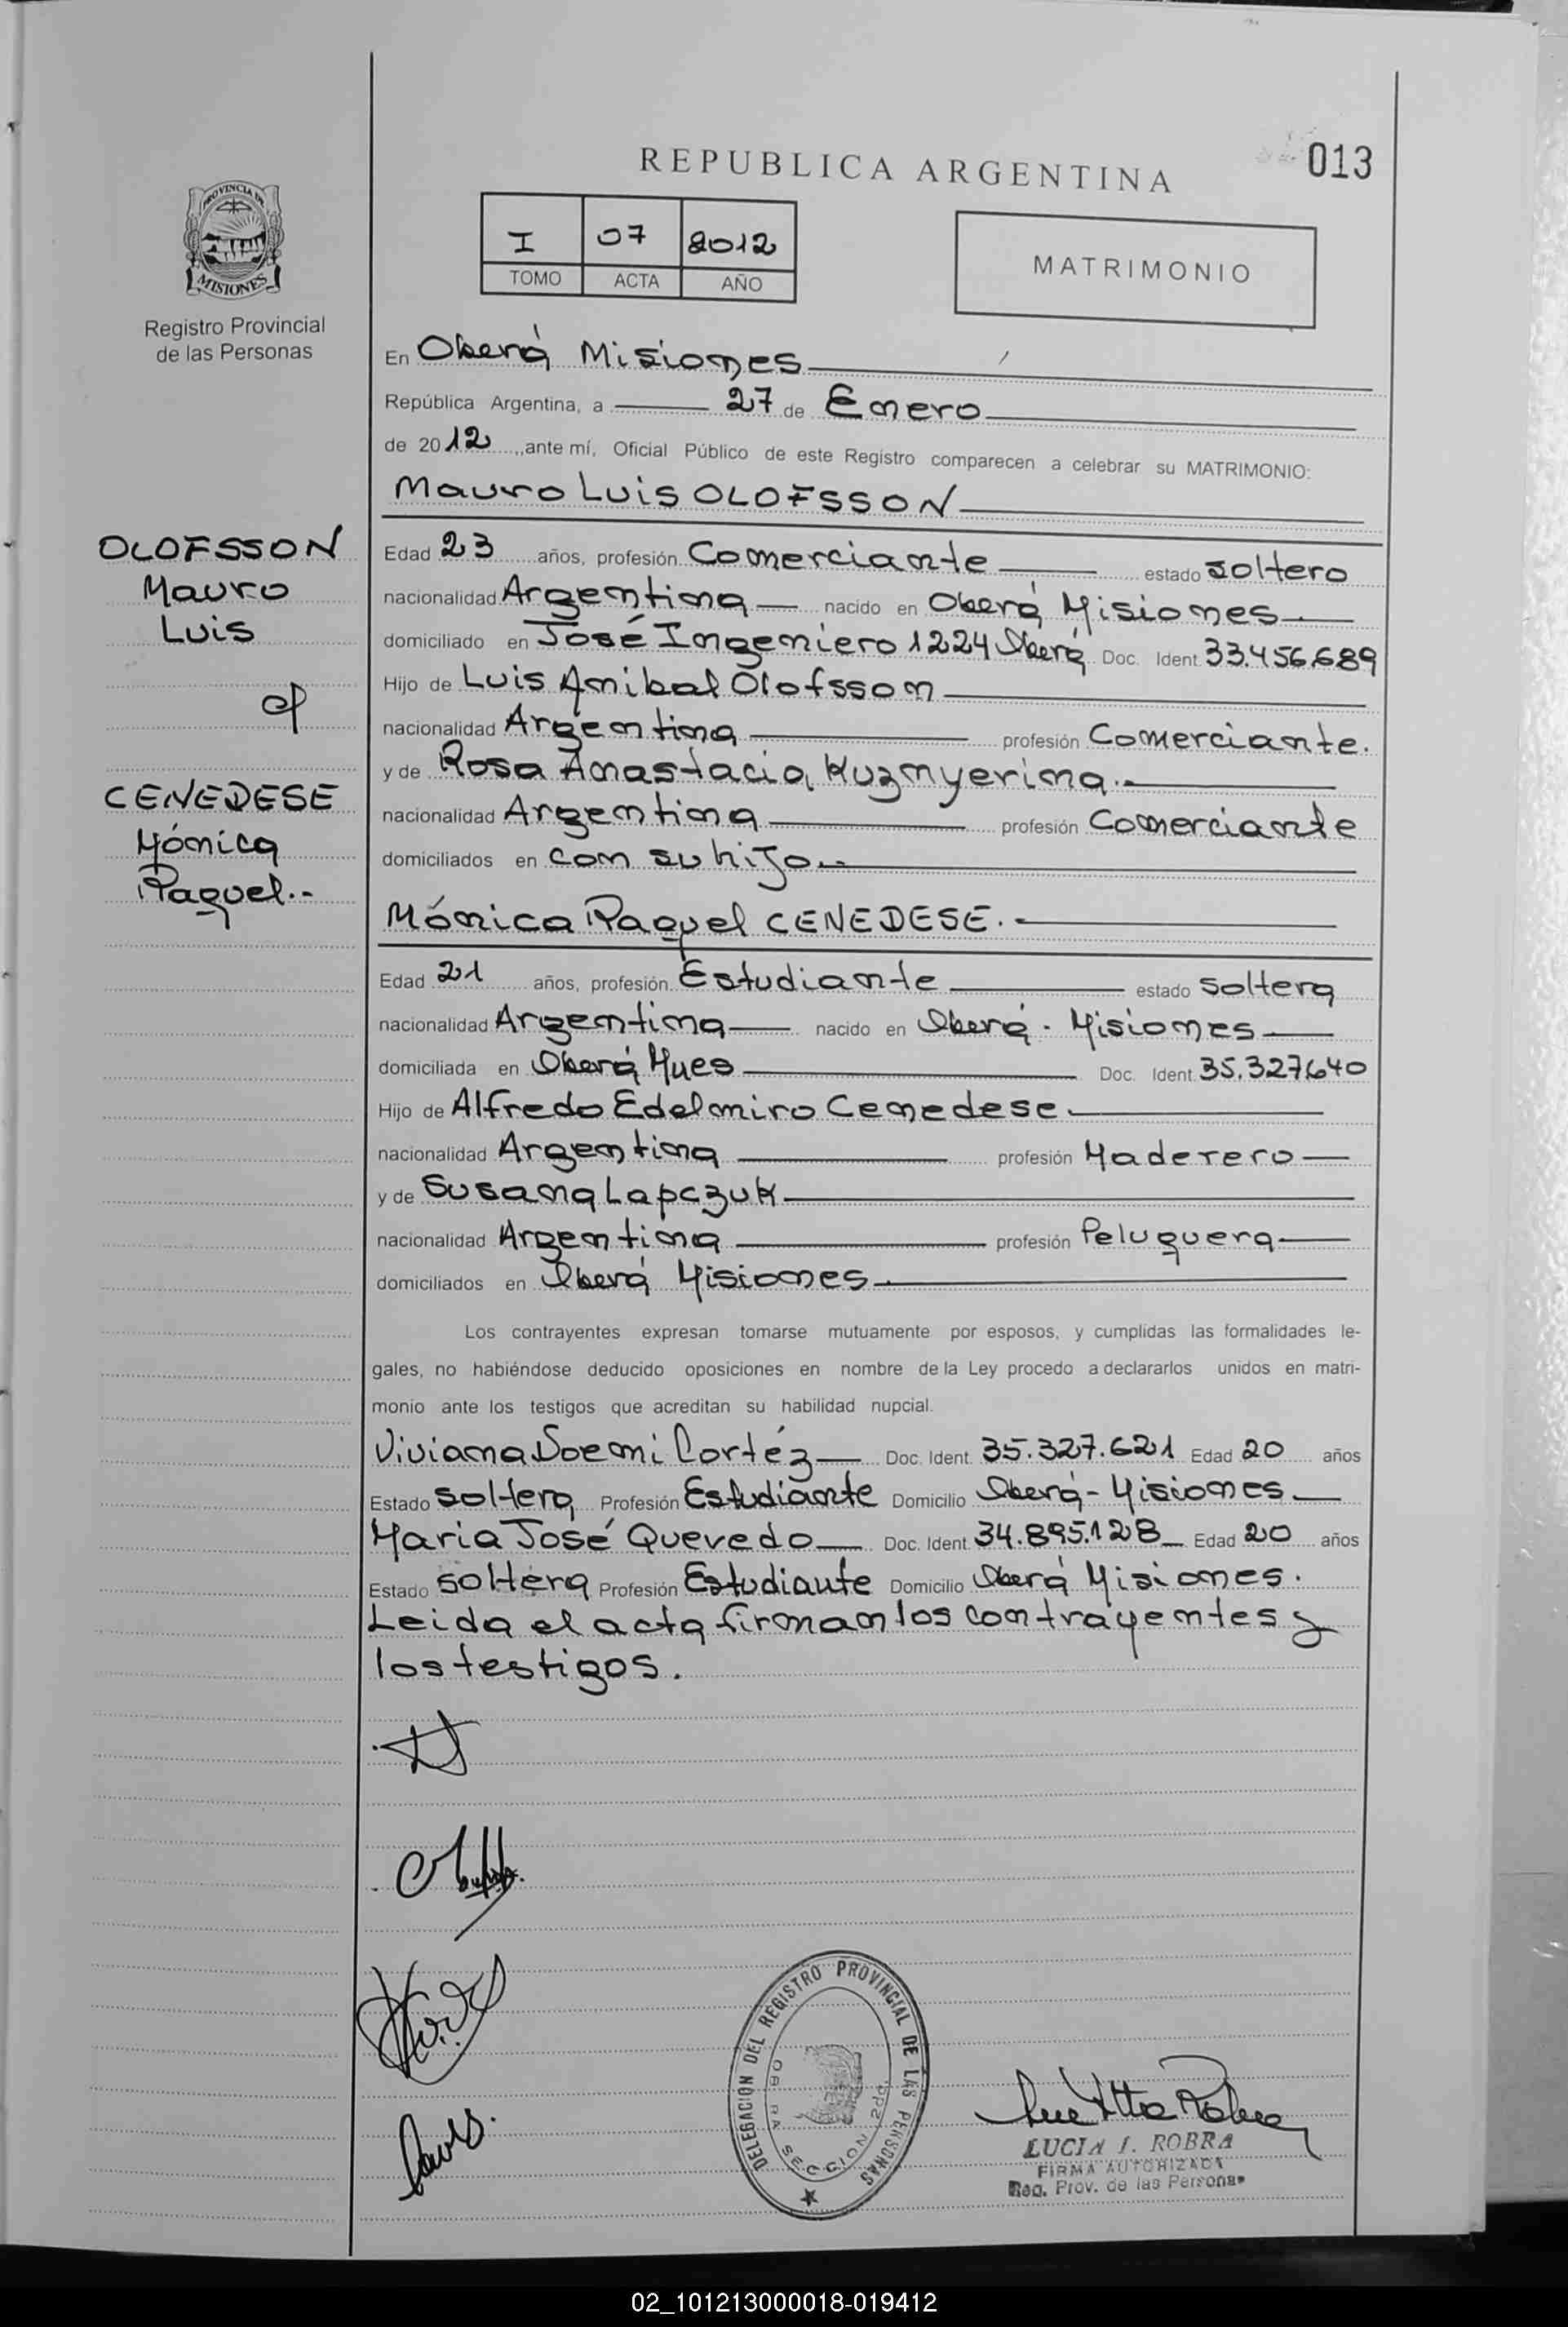 REPUBLICA ARGENTINA
013
I 07 2012
TOMO ACTA AÑO
MATRIMONIO
PROVINCIA DE
MISIONES
Registro Provincial
de las Personas
En Oberá Misiones
República Argentina, a 27 de Enero
de 2012, ante mí, Oficial Público de este Registro comparecen a celebrar su MATRIMONIO:
Mauro Luis OLOFSSON
OLOFSSON
Mauro
Luis
c/
CENEDESE
Mónica
Raquel.-
Edad 23 años, profesión Comerciante estado soltero
nacionalidad Argentina nacido en Oberá Misiones
domiciliado en José Ingeniero 1224 Oberá Doc. Ident. 33.456.689
Hijo de Luis Anibal Olofsson
nacionalidad Argentina profesión Comerciante.
y de Rosa Anastacia Kuzmyerina.-
nacionalidad Argentina profesión Comerciante
domiciliados en con su hijo.-
Mónica Raquel CENEDESE.-
Edad 21 años, profesión Estudiante estado soltera
nacionalidad Argentina nacido en Oberá - Misiones
domiciliada en Oberá Mnes Doc. Ident. 35.327640
Hijo de Alfredo Edelmiro Cenedese.
nacionalidad Argentina profesión Maderero
y de Susana Lapczuk
nacionalidad Argentina profesión Peluquera
domiciliados en Oberá Misiones
Los contrayentes expresan tomarse mutuamente por esposos, y cumplidas las formalidades le-
gales, no habiéndose deducido oposiciones en nombre de la Ley procedo a declararlos unidos en matri-
monio ante los testigos que acreditan su habilidad nupcial.
Viviana Noemi Cortéz Doc. Ident. 35.327.621 Edad 20 años
Estado soltera Profesión Estudiante Domicilio Oberá - Misiones
Maria José Quevedo Doc. Ident. 34.895.128 Edad 20 años
Estado soltera Profesión Estudiante Domicilio Oberá Misiones.
Leida el acta firman los contrayentes y
los testigos.
DELEGACION DEL REGISTRO PROVINCIAL DE LAS PERSONAS
SECCION 2da.
LUCIA I. ROBRA
FIRMA AUTORIZADA
Reg. Prov. de las Personas
02_101213000018-019412